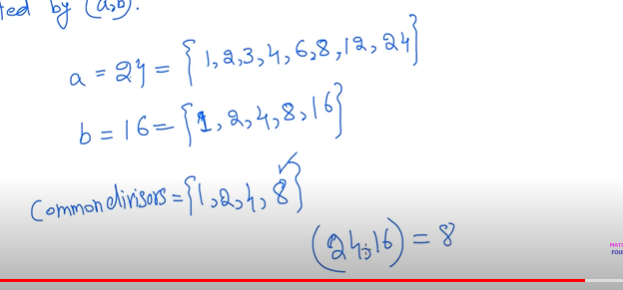 ted by (a,b).
a = 24 = {1,2,3,4,6,8,12,24}
b = 16 = {1,2,4,8,16}
Common divisors = {1,2,4,8}
(24,16) = 8
MATH
FOU